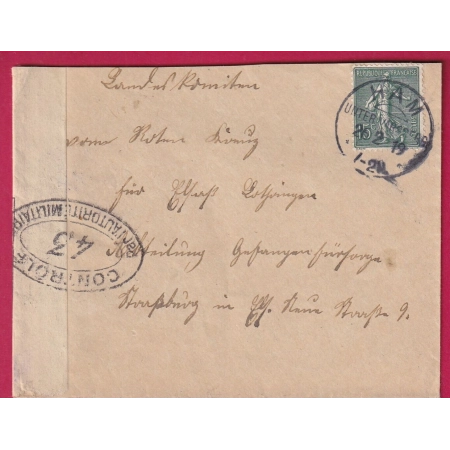 Landeskomiteu
vom Roten Kreuz
für Elsaß Lothringen
Abteilung Gefangenfürsorge
Straßburg in Els. Neue Straße 9.
REPUBLIQUE FRANÇAISE
15
HAM
2 19
1-2N
CONTRÔLE
par l'AUTORITÉ MILITAIRE
43